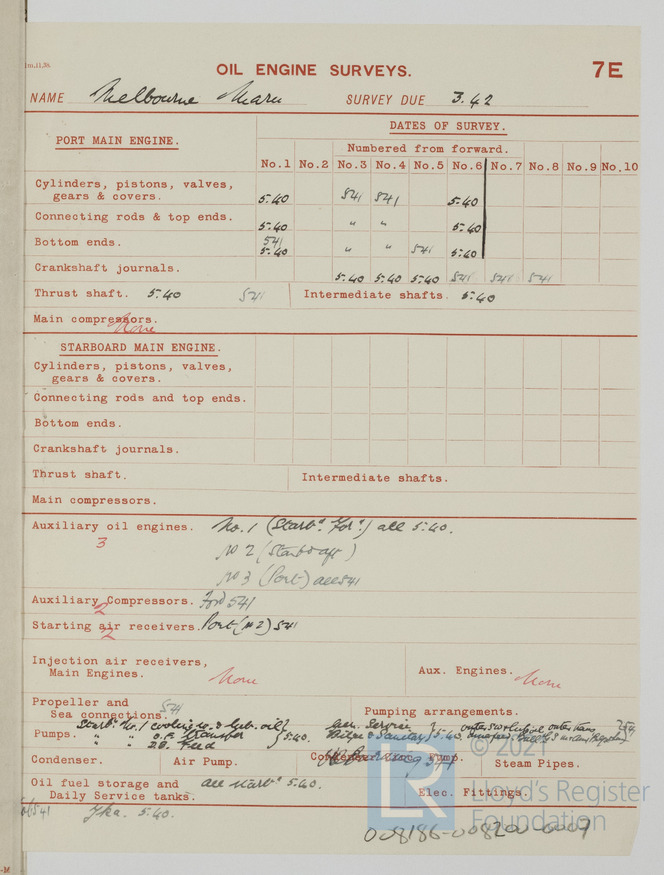 1m,11,38.
OIL ENGINE SURVEYS.
7E
NAME Melbourne Maru SURVEY DUE 3.42
DATES OF SURVEY.
PORT MAIN ENGINE.
Numbered from forward.
No.1 No.2 No.3 No.4 No.5 No.6 No.7 No.8 No.9 No.10
Cylinders, pistons, valves,
gears & covers. 5.40 541 541 5.40
Connecting rods & top ends. 5.40 " " 5.40
Bottom ends. 541
5.40 " " 541 5.40
Crankshaft journals. 5.40 5.40 5.40 541 541 541
Thrust shaft. 5.40 541 Intermediate shafts. 5.40
Main compressors.
None
STARBOARD MAIN ENGINE.
Cylinders, pistons, valves,
gears & covers.
Connecting rods and top ends.
Bottom ends.
Crankshaft journals.
Thrust shaft. Intermediate shafts.
Main compressors.
Auxiliary oil engines. No. 1 (Starbd. Ford.) all 5.40.
3
No 2 (Starbd aft)
No 3 (Port) all 541
Auxiliary Compressors. Ford 541
2
Starting air receivers. Port (No 2) 541
2
Injection air receivers,
Main Engines. None
Aux. Engines. None
Propeller and
Sea connections. 541
Pumping arrangements.
Pumps. Starbd. No. 1 cooling w. & lub. oil
" " O.F. Transfer 5.40
" " D.B. Feed
Gen. Service
Bilge & Sanitary 5.40
Condenser. Air Pump. Steam Pipes.
Oil fuel storage and
Daily Service tanks. all starbd 5.40.
Elec. Fittings.
541 Yka. 5.40.
© 2021
LR
Lloyd's Register
Foundation
008186-008200-0009
-M